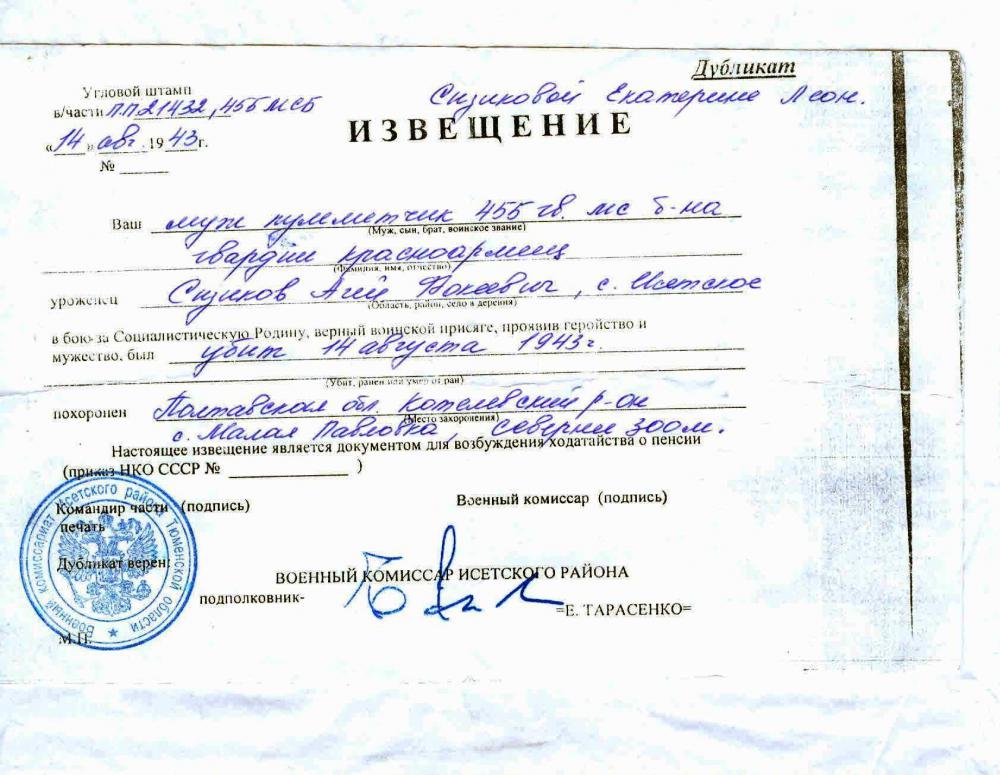 Дубликат
Угловой штамп
в/части ПП 21432, 455 МСБ
Сизиковой Екатерине Леон.
ИЗВЕЩЕНИЕ
«14» авг. 1943г.
№
Ваш муж пулеметчик 455 гв. мс б-на
(Муж, сын, брат, воинское звание)
гвардии красноармеец
(Фамилия, имя, отчество)
уроженец Сизиков Агей Фокеевич, с. Исетское
(Область, район, село и деревня)
в бою за Социалистическую Родину, верный воинской присяге, проявив геройство и
мужество, был убит 14 августа 1943г.
(Убит, ранен или умер от ран)
похоронен Полтавская обл. Котелевский р-он
(Место захоронения)
с. Малая Павловка, севернее 300м.
Настоящее извещение является документом для возбуждения ходатайства о пенсии
(приказ НКО СССР № )
Командир части (подпись) Военный комиссар (подпись)
печать
Дубликат верен:
ВОЕННЫЙ КОМИССАР ИСЕТСКОГО РАЙОНА
подполковник-
=Е. ТАРАСЕНКО=
М.П.
Военный комиссариат Исетского района Тюменской области